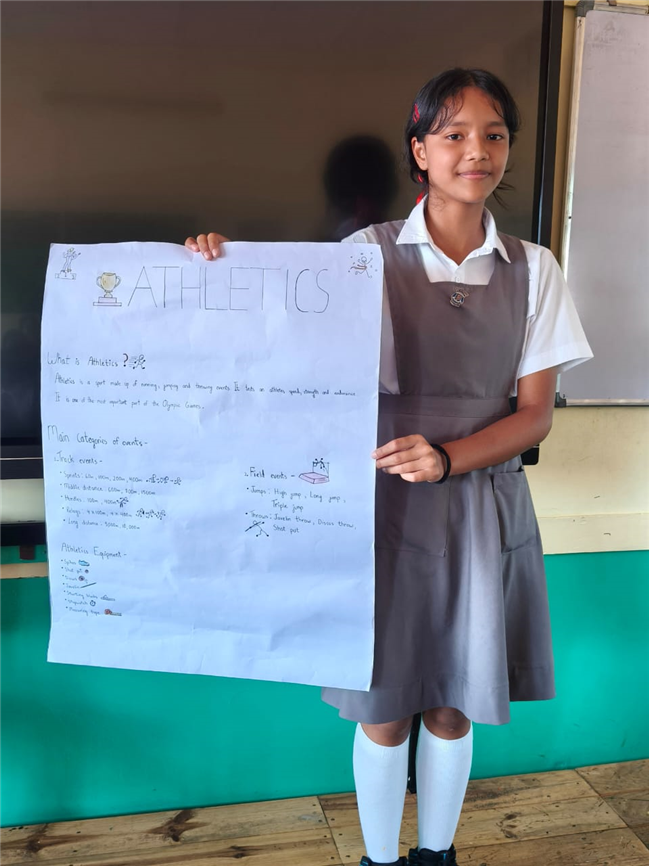 ATHLETICS
What is Athletics?
Athletics is a sport made up of running, jumping and throwing events. It tests an athletes speed, strength and endurance.
It is one of the most important part of the Olympic Games.
Main Categories of events-
Track events-
• Sprints: 60m, 100m, 200m, 400m
• Middle distance: 800m, 1500m
• Hurdles: 100m, 400m
• Relays: 4 x 100m, 4 x 400m
• Long distance: 5000m
Field events -
• Jumps: High jump, Long jump,
Triple jump
• Throws: Javelin throw, Discus throw,
Shot put
Athletics Equipment-
• Spikes
• Shot put
• Discus
• Javelin
• Starting blocks
• Stopwatch
• Measuring tape